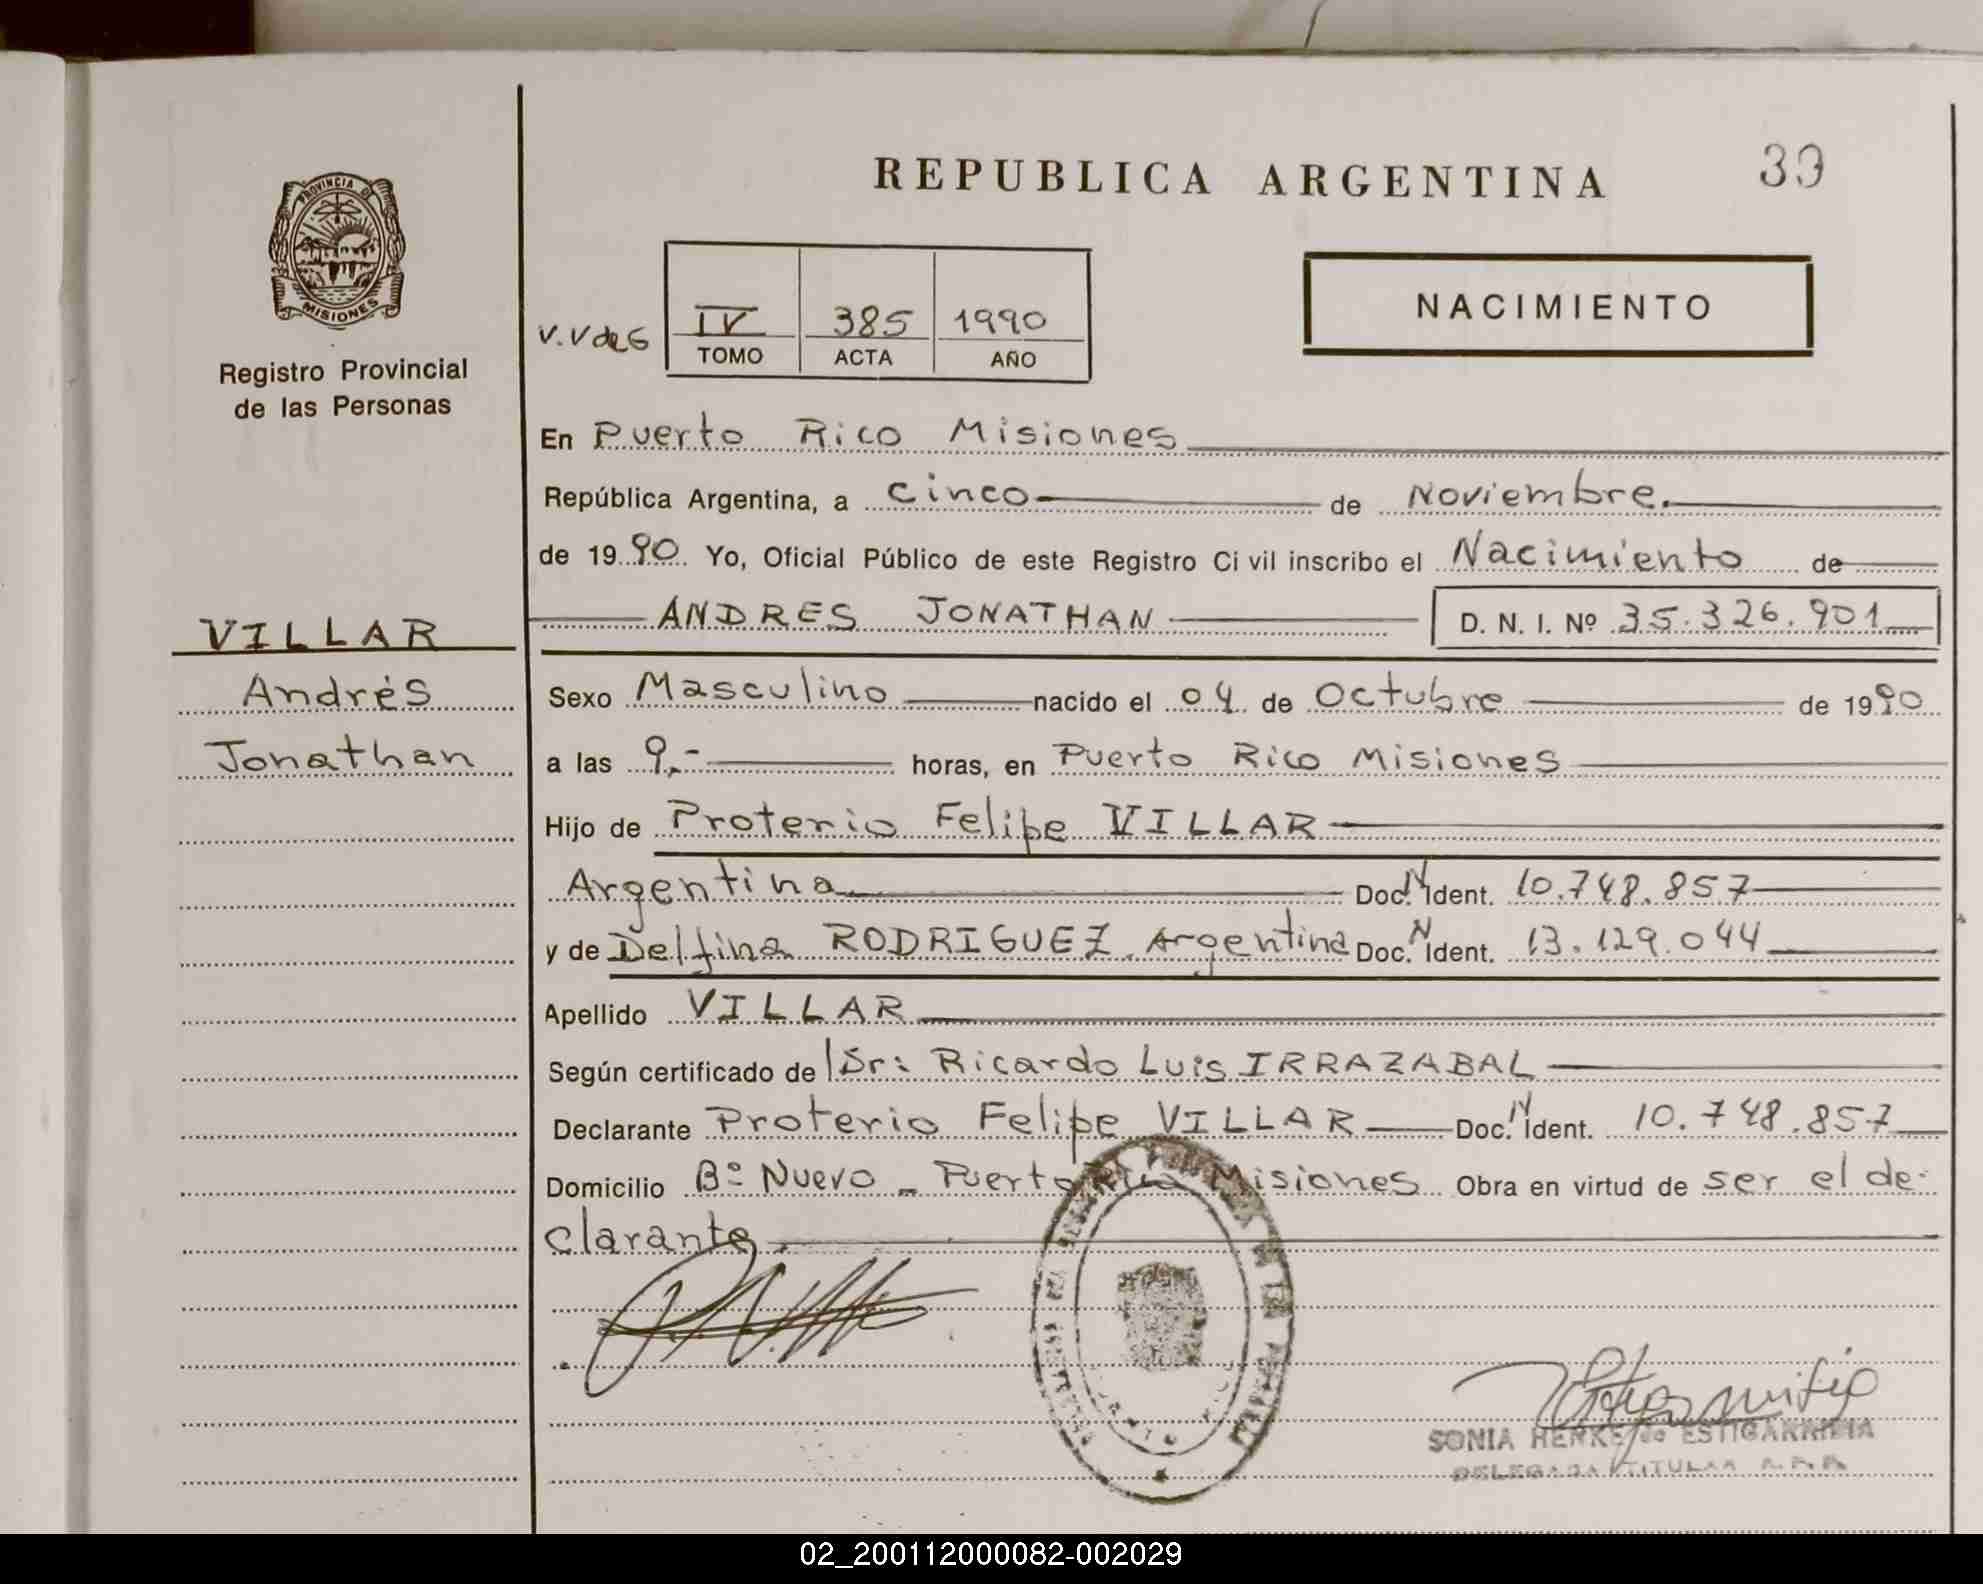 REPUBLICA ARGENTINA
39
PROVINCIA DE
MISIONES
Registro Provincial
de las Personas
NACIMIENTO
V.V de G
IV 385 1990
TOMO ACTA AÑO
En Puerto Rico Misiones
República Argentina, a cinco de Noviembre.
de 1990 Yo, Oficial Público de este Registro Ci vil inscribo el Nacimiento de
ANDRES JONATHAN D. N. I. Nº 35.326.901
VILLAR
Andrés
Jonathan
Sexo Masculino nacido el 04 de Octubre de 1990
a las 9.- horas, en Puerto Rico Misiones
Hijo de Proterio Felipe VILLAR
Argentina Doc. N Ident. 10.748.857
y de Delfina RODRIGUEZ. Argentina Doc. N Ident. 13.129.044
Apellido VILLAR
Según certificado de Dr: Ricardo Luis IRRAZABAL
Declarante Proterio Felipe VILLAR Doc. N Ident. 10.748.857
Domicilio Bº Nuevo - Puerto Rico Misiones Obra en virtud de ser el de-
clarante.
SONIA HENKE de ESTIGARRIBIA
DELEGADA TITULAR R.P.P.
02_200112000082-002029